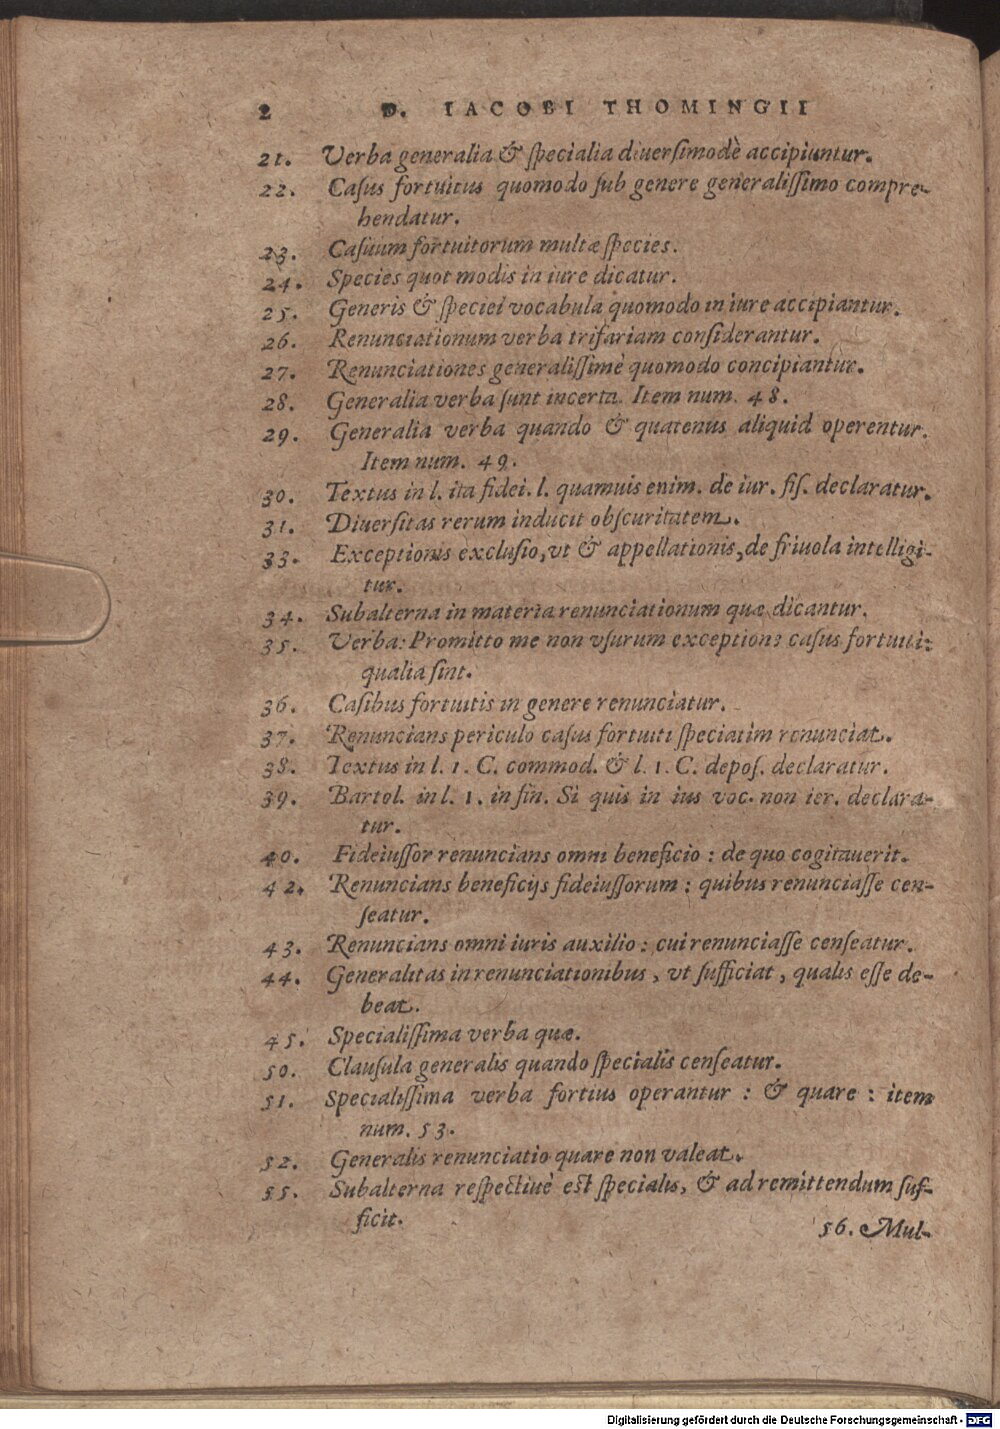 2 D. IACOBI THOMINGII
21. Verba generalia & ſpecialia diuerſimodè accipiuntur.
22. Caſus fortuitus quomodo ſub genere generaliſſimo compre-
hendatur.
23. Caſuum fortuitorum multæ ſpecies.
24. Species quot modis in iure dicatur.
25. Generis & ſpeciei vocabula quomodo in iure accipiantur.
26. Renunciationum verba trifariam conſiderantur.
27. Renunciationes generaliſſimè quomodo concipiantur.
28. Generalia verba ſunt incerta. Item num. 48.
29. Generalia verba quando & quatenus aliquid operentur.
Item num. 49.
30. Textus in l. ita fidei. l. quamuis enim. de iur. fiſ. declaratur.
31. Diuerſitas rerum inducit obſcuritatem.
33. Exceptionis excluſio, vt & appellationis, de friuola intelligi-
tur.
34. Subalterna in materia renunciationum quæ dicantur.
35. Verba: Promitto me non vſurum exceptione caſus fortuiti:
qualia ſint.
36. Caſibus fortuitis in genere renunciatur.
37. Renuncians periculo caſus fortuiti ſpeciatim renunciat.
38. Textus in l. 1. C. commod. & l. 1. C. depoſ. declaratur.
39. Bartol. in l. 1. in fin. Si quis in ius voc. non ier. declara-
tur.
40. Fideiuſſor renuncians omni beneficio : de quo cogitauerit.
42. Renuncians beneficijs fideiuſſorum : quibus renunciaſſe cen-
ſeatur.
43. Renuncians omni iuris auxilio : cui renunciaſſe cenſeatur.
44. Generalitas in renunciationibus, vt ſufficiat, qualis eſſe de-
beat.
45. Specialiſſima verba quæ.
50. Clauſula generalis quando ſpecialis cenſeatur.
51. Specialiſſima verba fortius operantur : & quare : item
num. 53.
52. Generalis renunciatio quare non valeat.
55. Subalterna reſpectiuè eſt ſpecialis, & ad remittendum ſuf-
ficit.
56. Mul-
Digitalisierung gefördert durch die Deutsche Forschungsgemeinschaft - DFG